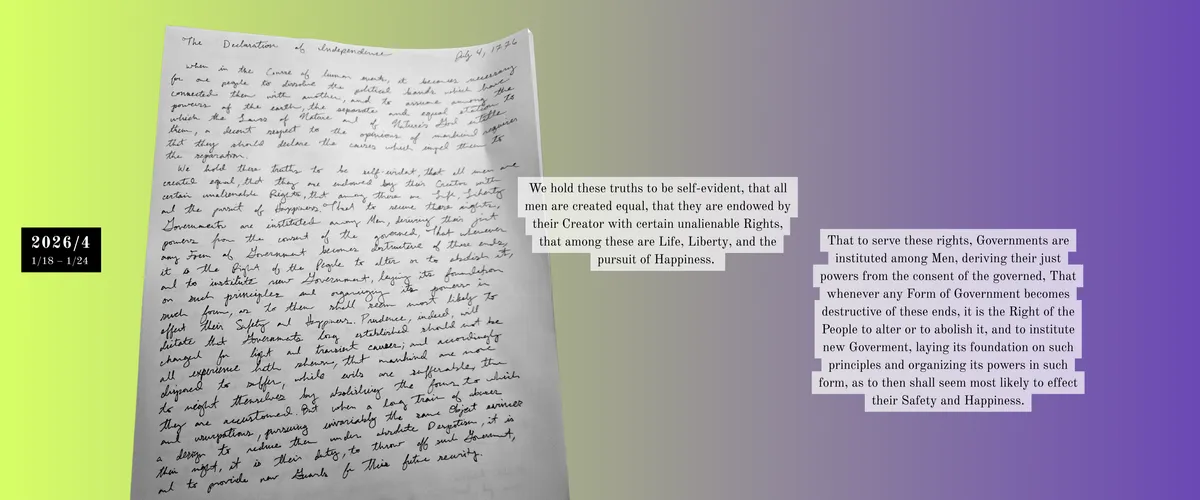 2026/4
1/18 – 1/24
The Declaration of Independence
July 4, 1776
When in the Course of human events, it becomes necessary
for one people to dissolve the political bands which have
connected them with another, and to assume among the
powers of the earth, the separate and equal station to
which the Laws of Nature and of Nature's God entitle
them, a decent respect to the opinions of mankind requires
that they should declare the causes which impel them to
the separation.
We hold these truths to be self-evident, that all men are
created equal, that they are endowed by their Creator with
certain unalienable Rights, that among these are Life, Liberty
and the pursuit of Happiness. That to secure these rights,
Governments are instituted among Men, deriving their just
powers from the consent of the governed, That whenever
any Form of Government becomes destructive of these ends,
it is the Right of the People to alter or to abolish it,
and to institute new Government, laying its foundation
on such principles and organizing its powers in
such form, as to them shall seem most likely to
effect their Safety and Happiness. Prudence, indeed, will
dictate that Governments long established should not be
changed for light and transient causes; and accordingly
all experience hath shewn, that mankind are more
disposed to suffer, while evils are sufferable, than
to right themselves by abolishing the forms to which
they are accustomed. But when a long train of abuses
and usurpations, pursuing invariably the same Object evinces
a design to reduce them under absolute Despotism, it is
their right, it is their duty, to throw off such Government,
and to provide new Guards for their future security.
We hold these truths to be self-evident, that all
men are created equal, that they are endowed by
their Creator with certain unalienable Rights,
that among these are Life, Liberty, and the
pursuit of Happiness.
That to serve these rights, Governments are
instituted among Men, deriving their just
powers from the consent of the governed, That
whenever any Form of Government becomes
destructive of these ends, it is the Right of the
People to alter or to abolish it, and to institute
new Goverment, laying its foundation on such
principles and organizing its powers in such
form, as to then shall seem most likely to effect
their Safety and Happiness.